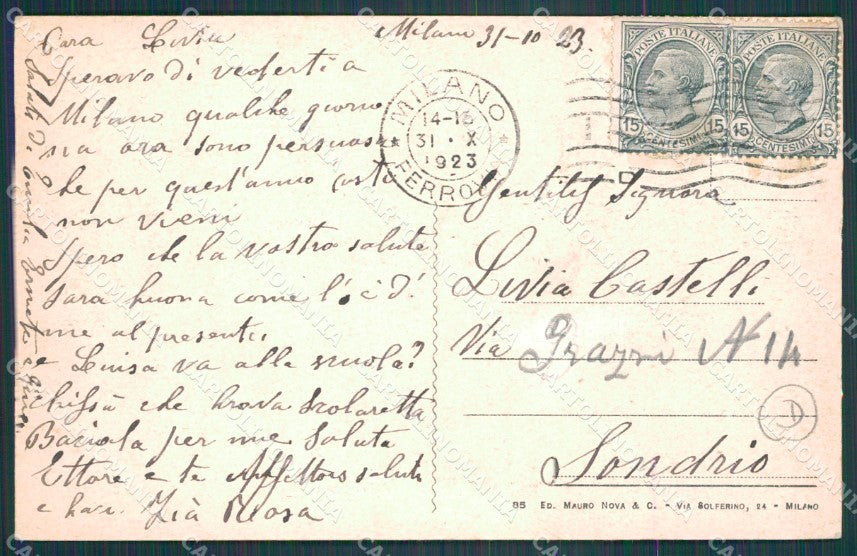 Milano 31-10 23.
Cara Livia
speravo di vederti a
Milano qualche giorno
ma ora sono persuasa
che per quest'anno
non vieni
Spero che la vostra salute
sara buona come l'è di
me al presente,
e Luisa va alla scuola?
chissà che brava scolaretta
Baciala per me saluta
Ettore e te saluti
e baci Zià Rosa
Saluti di
POSTE ITALIANE
15 CENTESIMI 15
POSTE ITALIANE
15 CENTESIMI 15
MILANO
14-15
31 · X
1923
FERROV
Gentil Signora
Livia Castelli
Via Grazzi N 14
Sondrio
D
85 ED. MAURO NOVA & C. - VIA SOLFERINO, 24 - MILANO
CARTOLINOMANIA